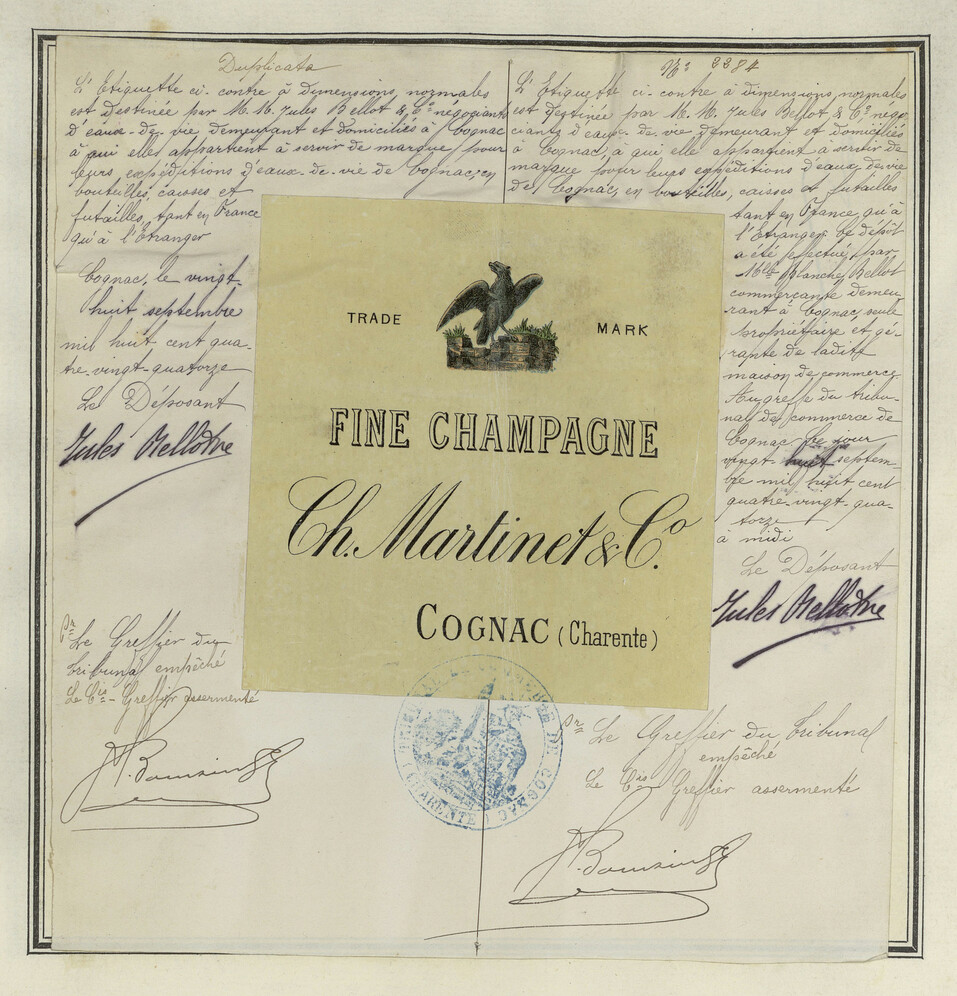 Duplicata
L'Etiquette ci-contre à dimensions normales
est destinée par M. M. Jules Bellot & Cie négociants
d'eaux-de-vie demeurant et domiciliés à Cognac
à qui elle appartient à servir de marque pour
leurs expéditions d'eaux-de-vie de Cognac, en
bouteilles, caisses et
futailles, tant en France
qu'à l'Etranger
Cognac, le vingt-
huit septembre
mil huit cent qua-
tre-vingt-quatorze
Le Déposant
Jules Bellot & Cie
Pr Le Greffier du
Tribunal empêché
Le Cis-Greffier assermenté
No 2284
L'Etiquette ci-contre à dimensions normales
est destinée par M. M. Jules Bellot & Cie négo-
ciants d'eaux-de-vie demeurant et domiciliés
à Cognac, à qui elle appartient à servir de
marque pour leurs expéditions d'eaux-de-vie
de Cognac, en bouteilles, caisses et futailles
tant en France, qu'à
l'Etranger. Ce dépôt
a été effectué, par
Mlle Blanche Bellot
commerçante demeu-
rant à Cognac, seule
propriétaire et gé-
rante de ladite
maison de commerce.
Au greffe du tribu-
nal de commerce de
Cognac. Ce jour
vingt-huit septem-
bre mil huit cent
quatre-vingt-qua-
torze
à midi
Le Déposant
Jules Bellot & Cie
Pr Le Greffier du Tribunal
empêché
Le Cis Greffier assermenté
TRADE MARK
FINE CHAMPAGNE
Ch. Martinet & Co.
COGNAC (Charente)
TRIBUNAL DE COMMERCE DE COGNAC
(CHARENTE)